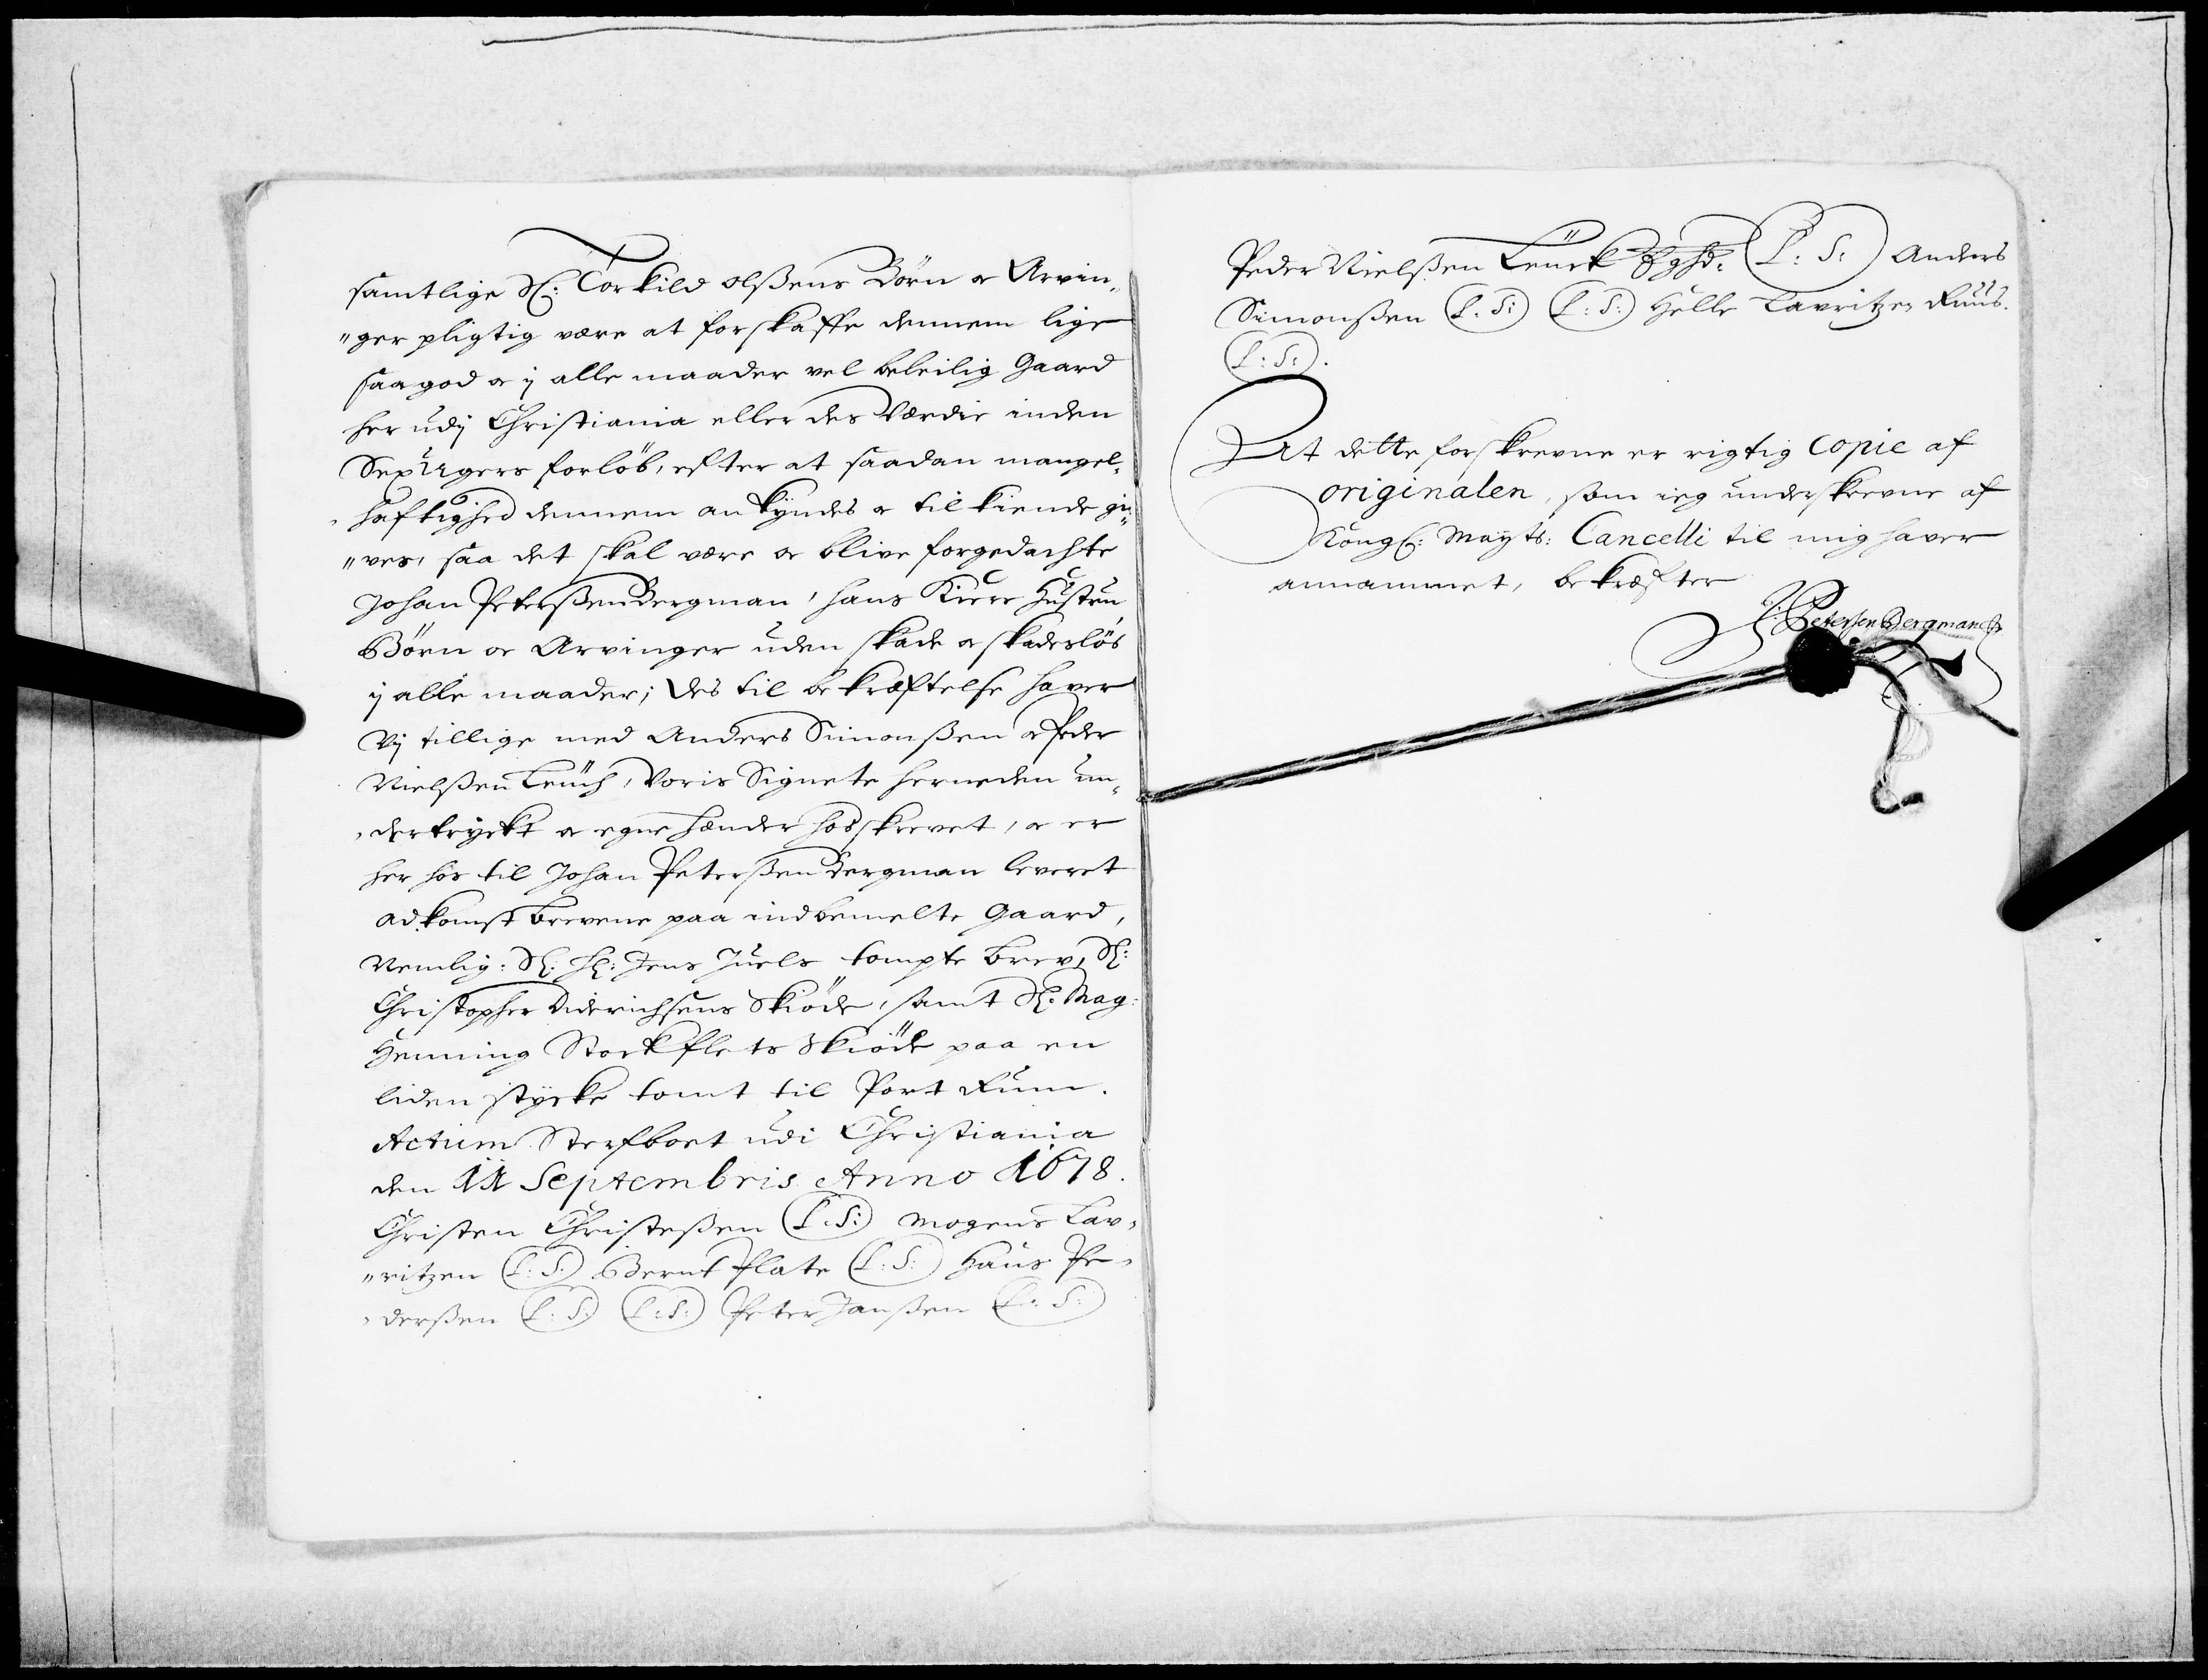 samtlige Sl: Torkild Olßens Børn oc Arvin„
„ger pligtig være at forskaffe dennem lige
saa god oc ÿ alle maader vel beleilig Gaard
her udÿ Christiania eller des Værdie inden
Sex Ugers forløb, efter at saadan mangel„
„haftighed dennem ankÿndes oc tilkiende gi„
„ves, saa det skal være oc blive forgedachte
Johan Peterßen Bergman, hans Kiere Hustru
Børn oc Arvinger uden skade oc skadesløs
ÿ alle maader; Des til bekræftelse haver
Vÿ tillige med Anders Simonßen oc Peder
Nielßen Leuch, Voris Signete herneden un„
„dertrÿckt oc egne hænder hosskrevet, oc er
her hos til Johan Peterßen Bergman leveret
adkomst brevene paa indbemelte Gaard,
Nemlig: Sl: Hr: Jens Juels tompte brev, Sl:
Christopher Diderichsens Skiøde, samt Sl: Mag:
Henning Stockflets Skiøde paa en
liden stÿcke tomt til Port Rum.
Actum Sterfboet udi Christiania
den 11 Septembris Anno 1678.
Christen Christeßen (L. S:) Mogens Lav„
„ritzen (L: S:) Bernt Plate (L: S:) Hans Pe„
„derßen (L: S:) (L: S:) Peter Janßen (L: S:)
Peder Nielßen Leuck (L: S: ) Anders
Simonßen (L. S:) (L: S:) Helle Lavritzen Ruus.
(L: S:).
At dette forskrevne er rigtig Copie af
originalen, som ieg underskrevne af
Kongl: Maÿts: Cancelli til mig haver
annammet, bekræfter
J: Petersen Bergman